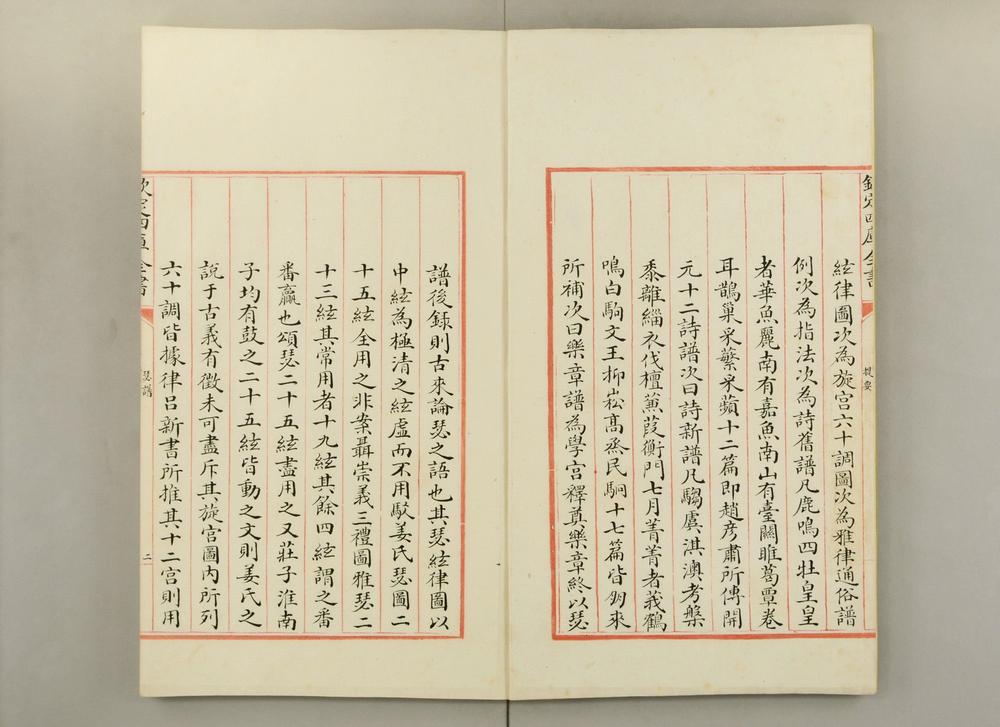 欽定四庫全書
提要
絃律圖次為旋宫六十調圖次為雅律通俗譜
例次為指法次為詩舊譜凡鹿鳴四牡皇皇
者華魚麗南有嘉魚南山有臺闗睢葛覃卷
耳鵲巢采蘩采蘋十二篇即趙彦肅所傳開
元十二詩譜次曰詩新譜凡騶虞淇澳考槃
黍離緇衣伐檀蒹葭衡門七月菁菁者莪鶴
鳴白駒文王抑崧髙烝民駉十七篇皆朋來
所補次曰樂章譜為學宫釋奠樂章終以瑟
譜後録則古來論瑟之語也其瑟絃律圖以
中絃為極清之絃虚而不用駁姜氏瑟圖二
十五絃全用之非案聶崇義三禮圖雅瑟二
十三絃其常用者十九絃其餘四絃謂之番
番贏也頌瑟二十五絃盡用之又莊子淮南
子均有鼓之二十五絃皆動之文則姜氏之
說于古義有徵未可盡斥其旋宫圖内所列
六十調皆據律吕新書所推其十二宫則用
欽定四庫全書
瑟譜
二